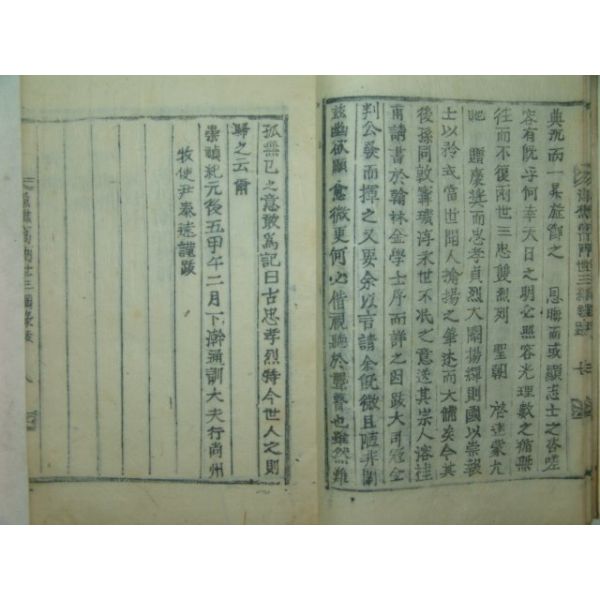 典況而一柬旌賚之 恩晦而或顯志士之咨嗟
容有旣乎何幸大日之明必照容光理數之循無
往而不復兩世三忠雙烈列 聖朝 啓達蒙允
贈慶奬而忠孝貞烈大闡揚輝則國以崇報
士以矜或當世聞人揄揚之筆述而大備矣今其
後孫同敦 瓚淳永世不泯之意送其宗人溶佳
甫請書於翰林金學士序而詳之因跋大司冠金
判公發而揮之又要余以言請余旣微且陋非闡
玆幽欲顯愈微更何必借視聽於聾瞽也雖然難
孤無已之意敢爲記曰古忠孝烈特今世人之則
歸之云爾
崇禎紀元後五甲午二月下澣通訓大夫行尙州
牧使尹泰遠謹跋